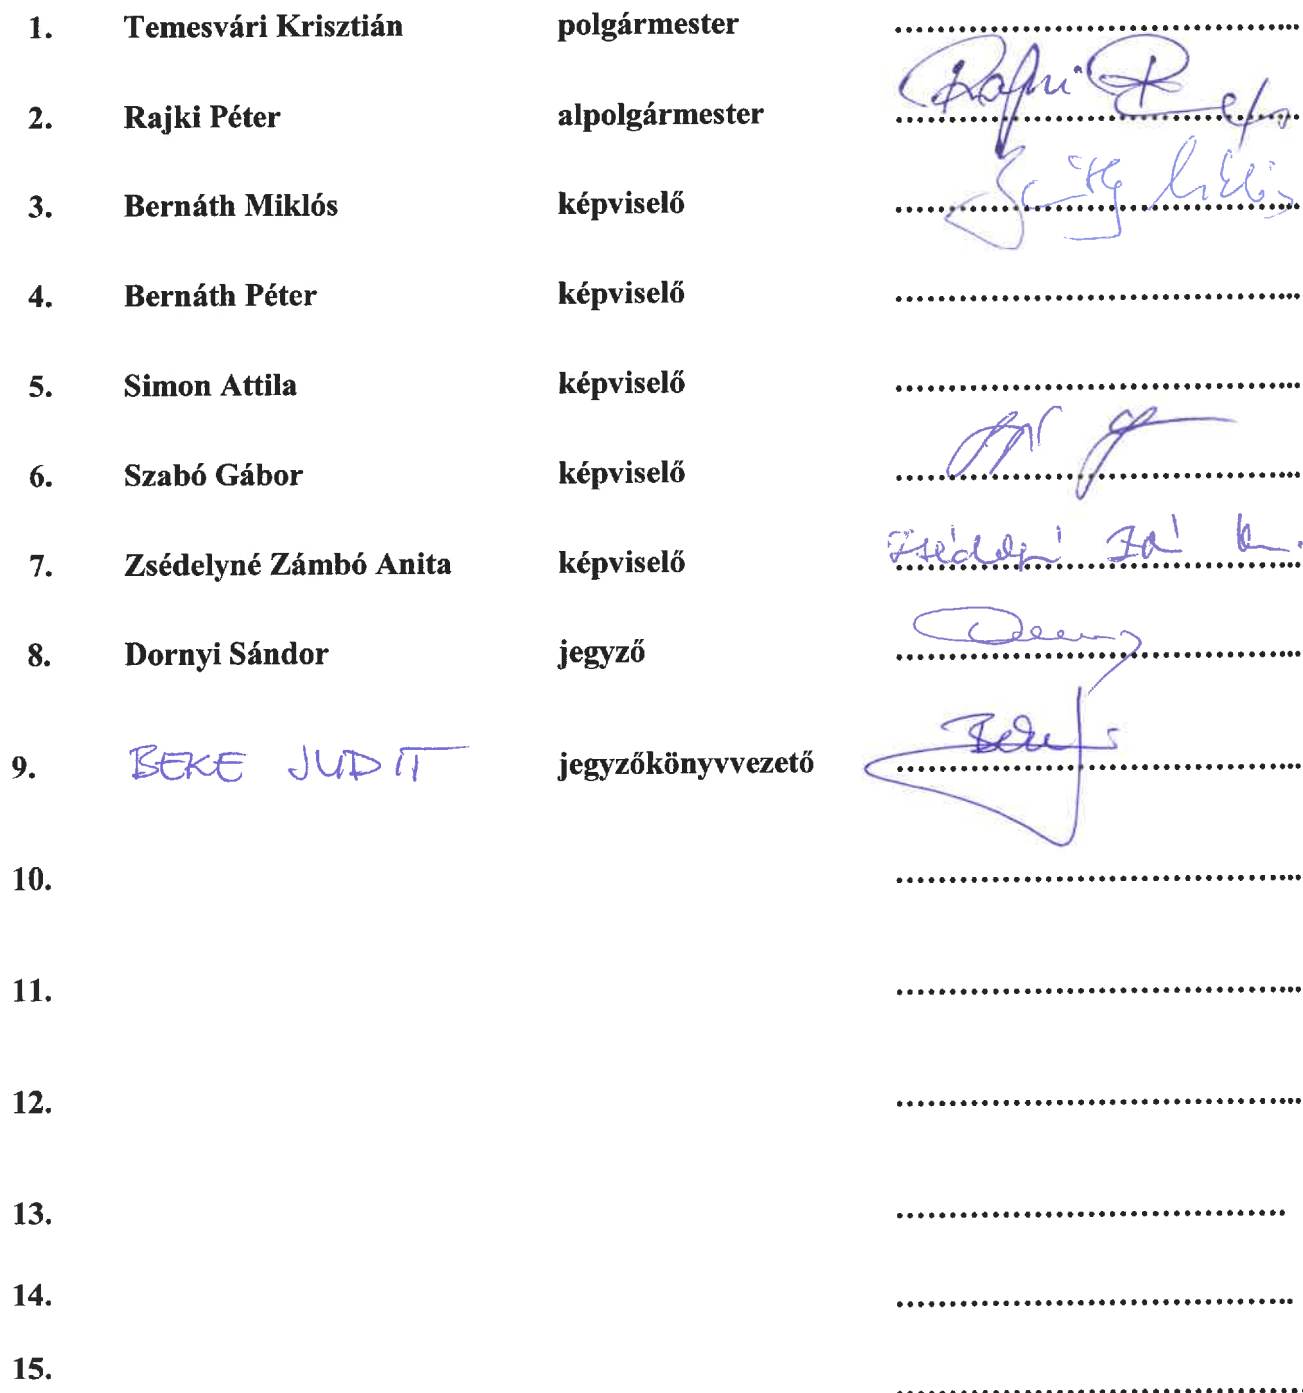 1. Temesvári Krisztián polgármester ........................................
2. Rajki Péter alpolgármester ........................................
3. Bernáth Miklós képviselő ........................................
4. Bernáth Péter képviselő ........................................
5. Simon Attila képviselő ........................................
6. Szabó Gábor képviselő ........................................
7. Zsédelyné Zámbó Anita képviselő ........................................
8. Dornyi Sándor jegyző ........................................
9. BEKE JUDIT jegyzőkönyvvezető ........................................
10. ........................................
11. ........................................
12. ........................................
13. ........................................
14. ........................................
15. ........................................